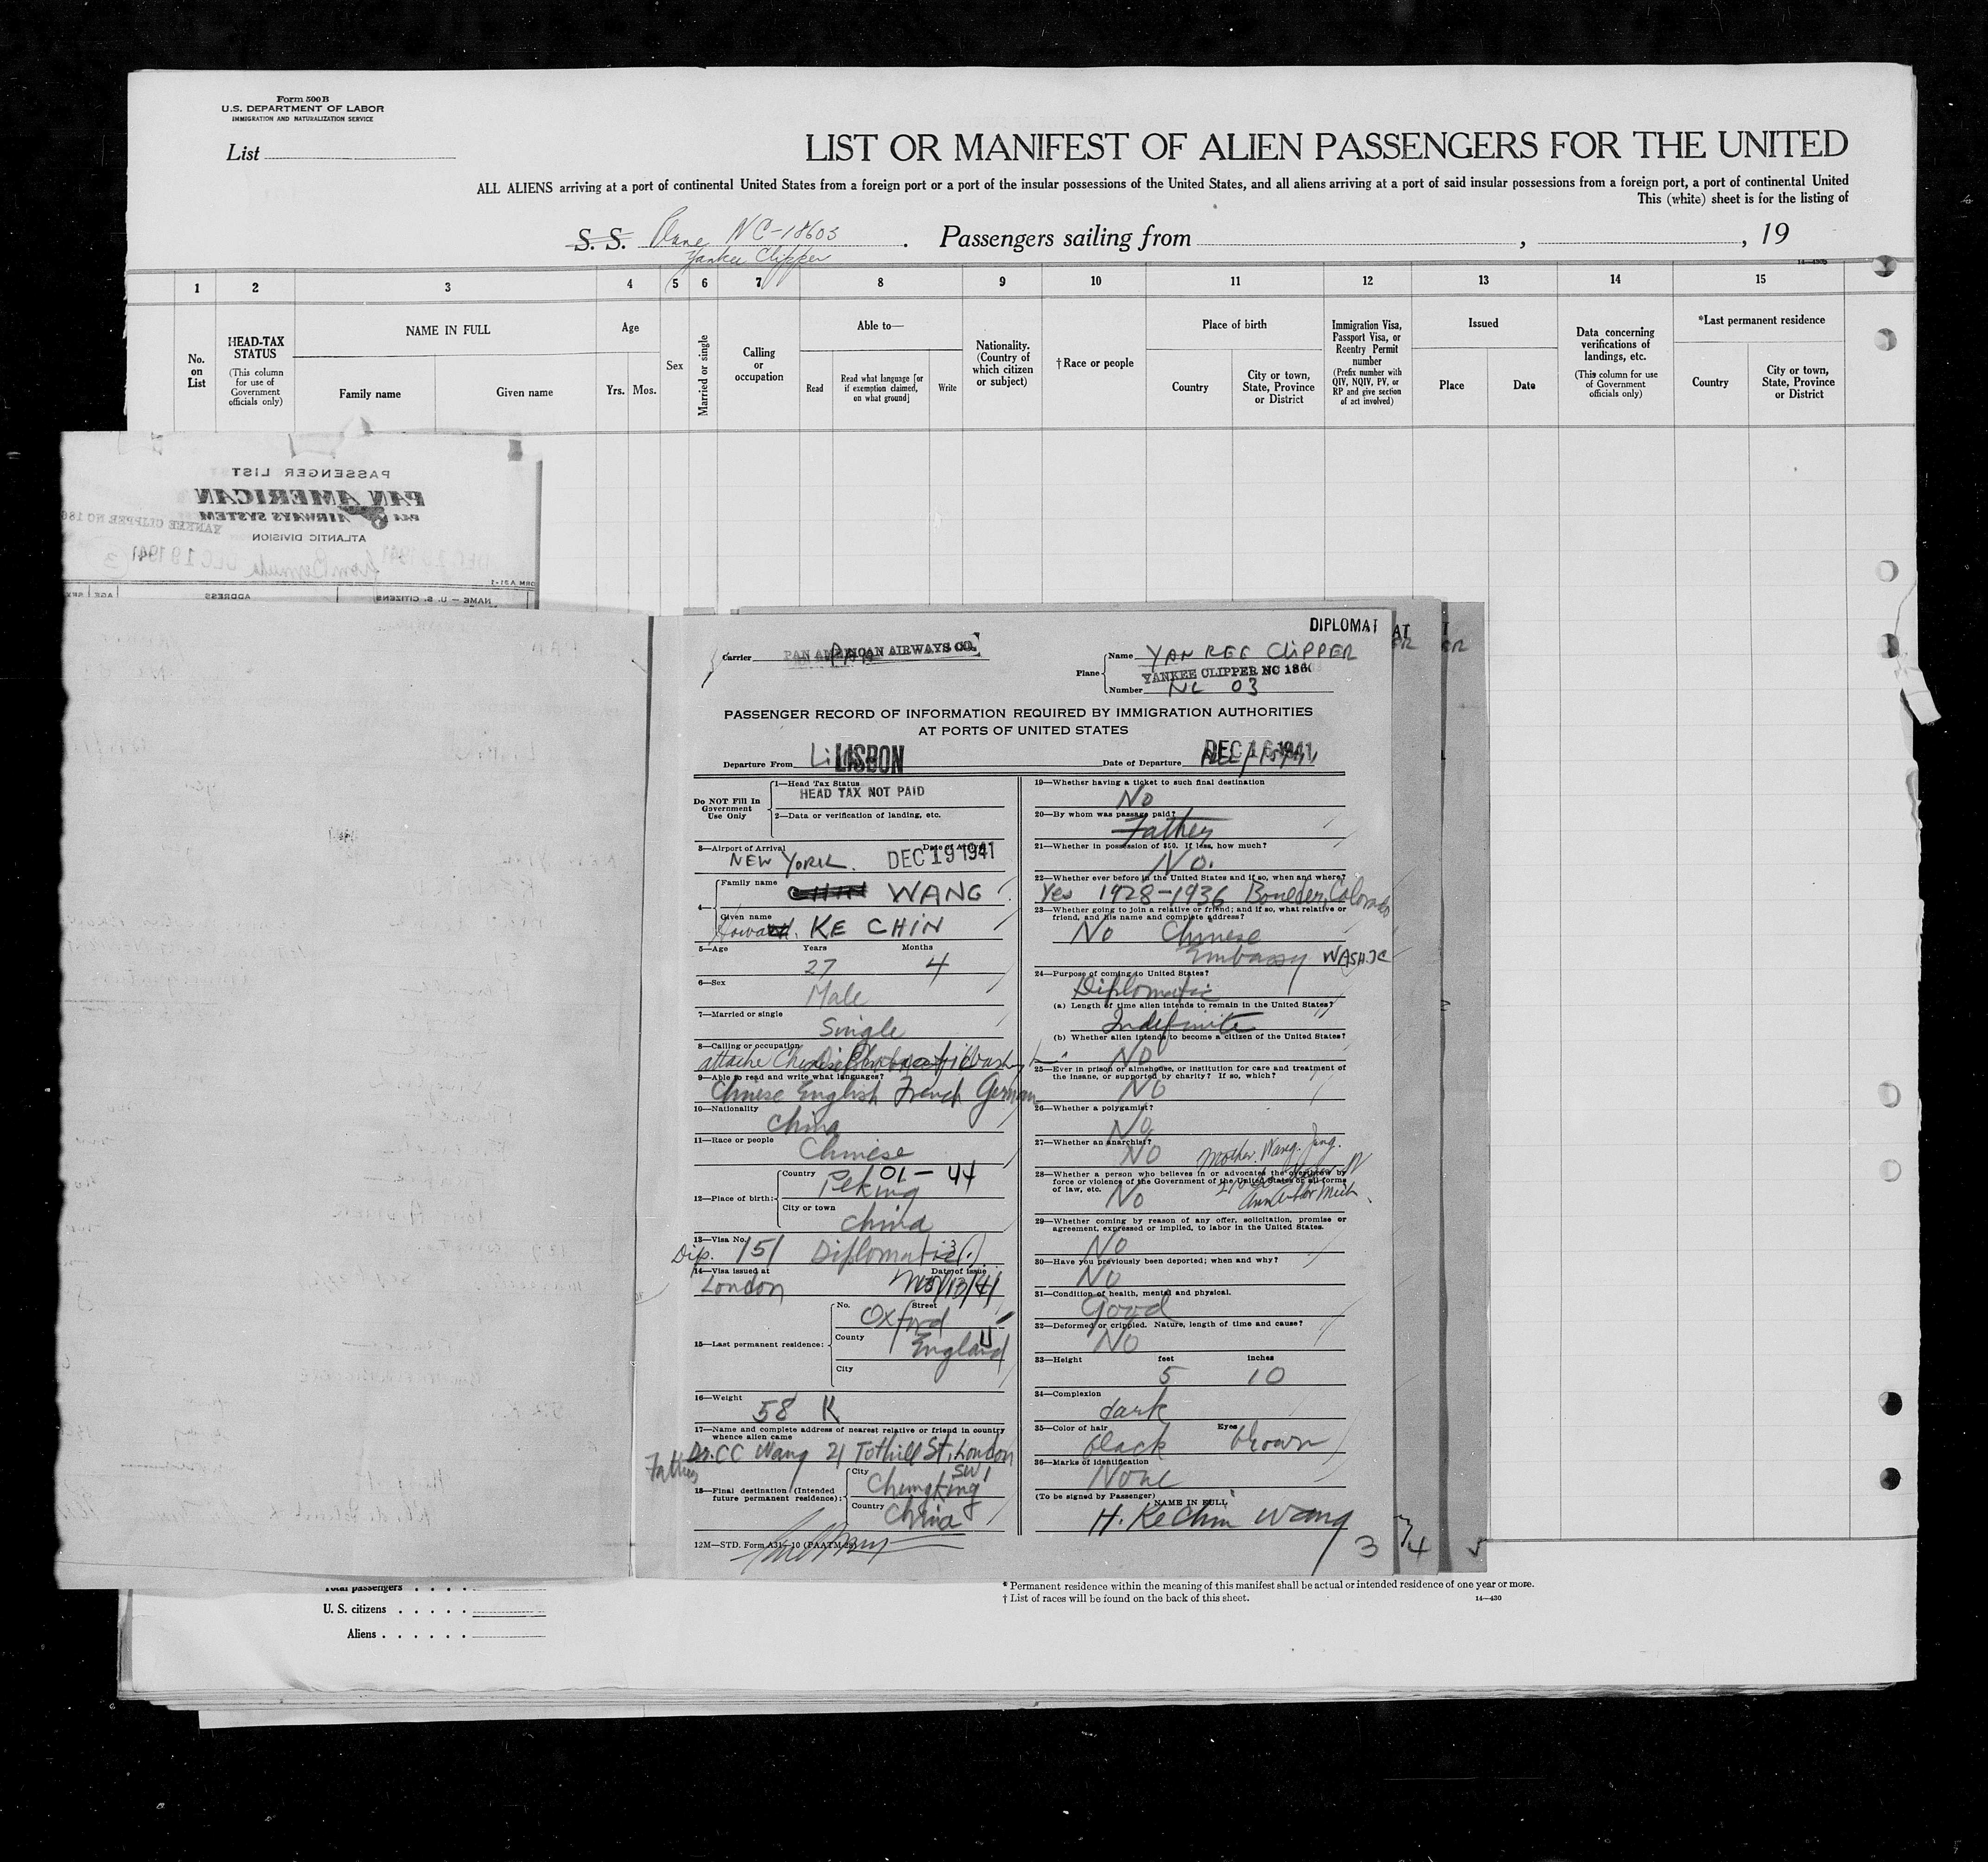 Form 500 B
U.S. DEPARTMENT OF LABOR
IMMIGRATION AND NATURALIZATION SERVICE
List
LIST OR MANIFEST OF ALIEN PASSENGERS FOR THE UNITED
ALL ALIENS arriving at a port of continental United States from a foreign port or a port of the insular possessions of the United States, and all aliens arriving at a port of said insular possessions from a foreign port, a port of continental United
This (white) sheet is for the listing of
S. S. Plane NC-18603 . Passengers sailing from , , 19
Yankee Clipper
1 2 3 4 5 6 7 8 9 10 11 12 13 14 15
No. on List
HEAD-TAX STATUS
(This column for use of Government officials only)
NAME IN FULL
Family name
Given name
Age
Yrs. Mos.
Sex
Married or single
Calling or occupation
Able to—
Read
Read what language [or if exemption claimed, on what ground]
Write
Nationality. (Country of which citizen or subject)
†Race or people
Place of birth
Country
City or town, State, Province or District
Immigration Visa, Passport Visa, or Reentry Permit number
(Prefix number with QIV, NQIV, PV, or RP and give section of act involved)
Issued
Place
Date
Data concerning verifications of landings, etc.
(This column for use of Government officials only)
*Last permanent residence
Country
City or town, State, Province or District
PASSENGER LIST
PAN AMERICAN
AIRWAYS SYSTEM
YANKEE CLIPPER NC 186
ATLANTIC DIVISION
from Bermuda DEC 19 1941
3
NAME — U. S. CITIZENS
ADDRESS
AGE
SEX
DIPLOMAT
Carrier PAN AMERICAN AIRWAYS CO.
Plane
Name YANKEE CLIPPER
YANKEE CLIPPER NC 1860
Number NC 03
PASSENGER RECORD OF INFORMATION REQUIRED BY IMMIGRATION AUTHORITIES
AT PORTS OF UNITED STATES
Departure From LISBON
Date of Departure DEC 16 1941
Do NOT Fill In
Government
Use Only
1—Head Tax Status
HEAD TAX NOT PAID
2—Data or verification of landing, etc.
3—Airport of Arrival
NEW YORK.
Date of Arrival
DEC 19 1941
4—
Family name
CHIN WANG
Given name
Howard. KE CHIN
5—Age
Years 27
Months 4
6—Sex
Male
7—Married or single
Single
8—Calling or occupation
attache Chinese Embassy Wash
9—Able to read and write what languages?
Chinese English French German
10—Nationality
China
11—Race or people
Chinese
12—Place of birth:
Country
Peking 01-44
City or town
China
13—Visa No.
Dip. 151 Diplomatic 3(1)
14—Visa issued at
London
Date of issue
Nov/13/41
15—Last permanent residence:
No. Street
Oxford
County
England
City
16—Weight
58 K
17—Name and complete address of nearest relative or friend in country
whence alien came
Father Dr. CC Wang 21 Tothill St, London
SW1
18—Final destination (Intended
future permanent residence):
City
Chungking
Country
China
12M—STD. Form A31—10 (PAATM-28)
19—Whether having a ticket to such final destination
No
20—By whom was passage paid?
Father
21—Whether in possession of $50. If less, how much?
No.
22—Whether ever before in the United States and if so, when and where?
Yes 1928-1936 Boulder, Colorado
23—Whether going to join a relative or friend; and if so, what relative or
friend, and his name and complete address?
No Chinese
Embassy WASH. DC
24—Purpose of coming to United States?
Diplomatic
(a) Length of time alien intends to remain in the United States?
Indefinite
(b) Whether alien intends to become a citizen of the United States?
No
25—Ever in prison or almshouse, or institution for care and treatment of
the insane, or supported by charity? If so, which?
NO
26—Whether a polygamist?
No
27—Whether an anarchist?
NO
Mother. Wang
28—Whether a person who believes in or advocates the overthrow by
force or violence of the Government of the United States or all forms
of law, etc.
No
Ann Arbor Mich
29—Whether coming by reason of any offer, solicitation, promise or
agreement, expressed or implied, to labor in the United States.
No
30—Have you previously been deported; when and why?
No
31—Condition of health, mental and physical.
Good
32—Deformed or crippled. Nature, length of time and cause?
NO
33—Height
feet 5
inches 10
34—Complexion
dark
35—Color of hair
black
Eyes
brown
36—Marks of identification
None
(To be signed by Passenger)
NAME IN FULL
H. KeChin Wang
3 4 5
Total passengers . . . .
U. S. citizens . . . . .
Aliens . . . . . .
* Permanent residence within the meaning of this manifest shall be actual or intended residence of one year or more.
† List of races will be found on the back of this sheet.
14—430